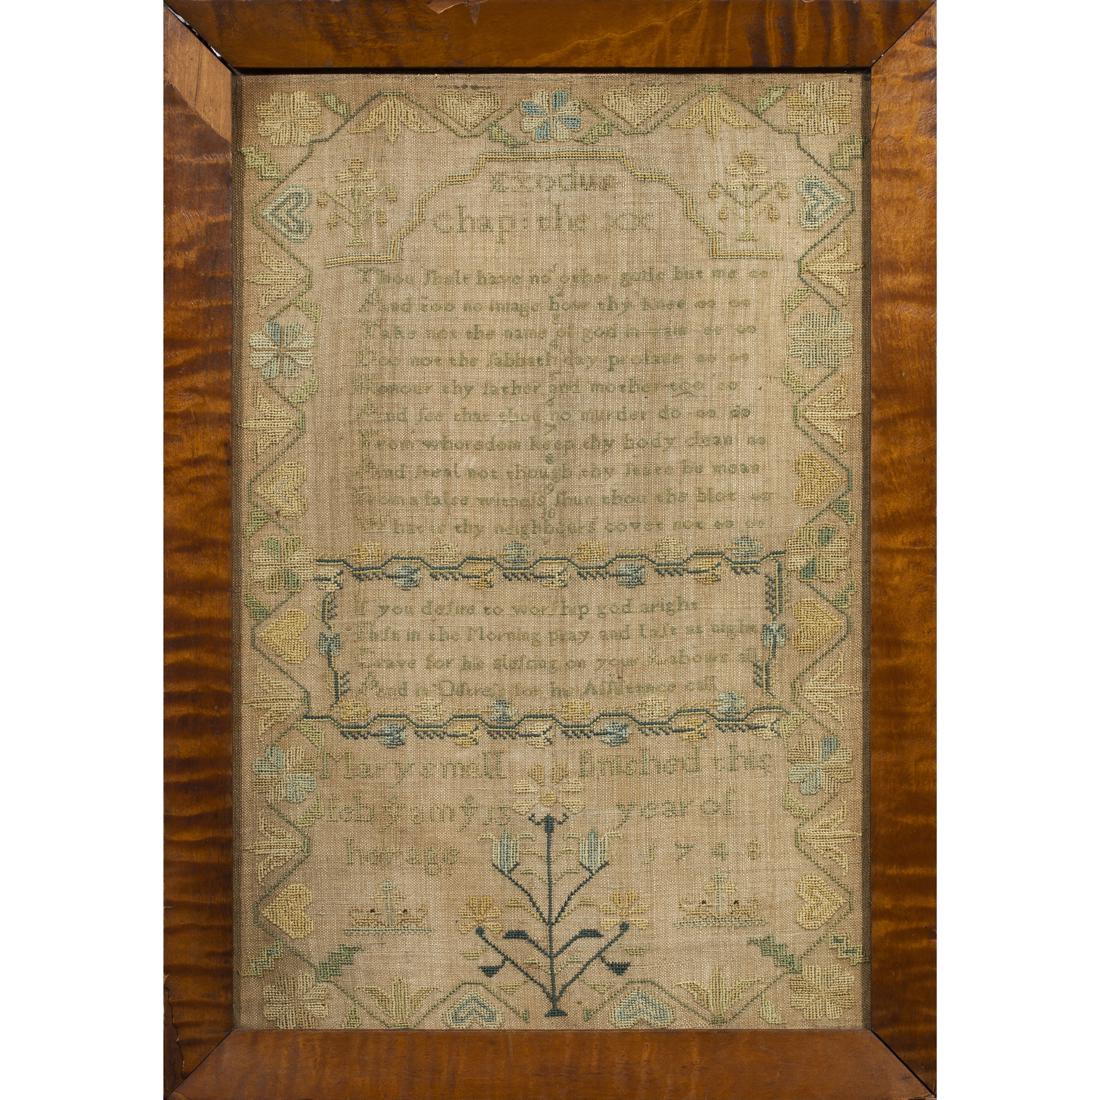 Exodus
chap: the xx
Thou shalt have no other gods but me
And too no image bow thy knee
Take not the name of god in vain
Doo not the sabbath day profane
Honour thy father and mother too
And see that thou no murder do
From whoredom keep thy body clean
And steal not though thy state be mean
From a false witness shun thou the blot
What is thy neighbours covet not
If you desire to worship god aright
First in the Morning pray and Last at night
Crave for his blessing on your Labours all
And in Distress for his Assistance call
Mary Small finished this
in ye 13 year of
her age 1748